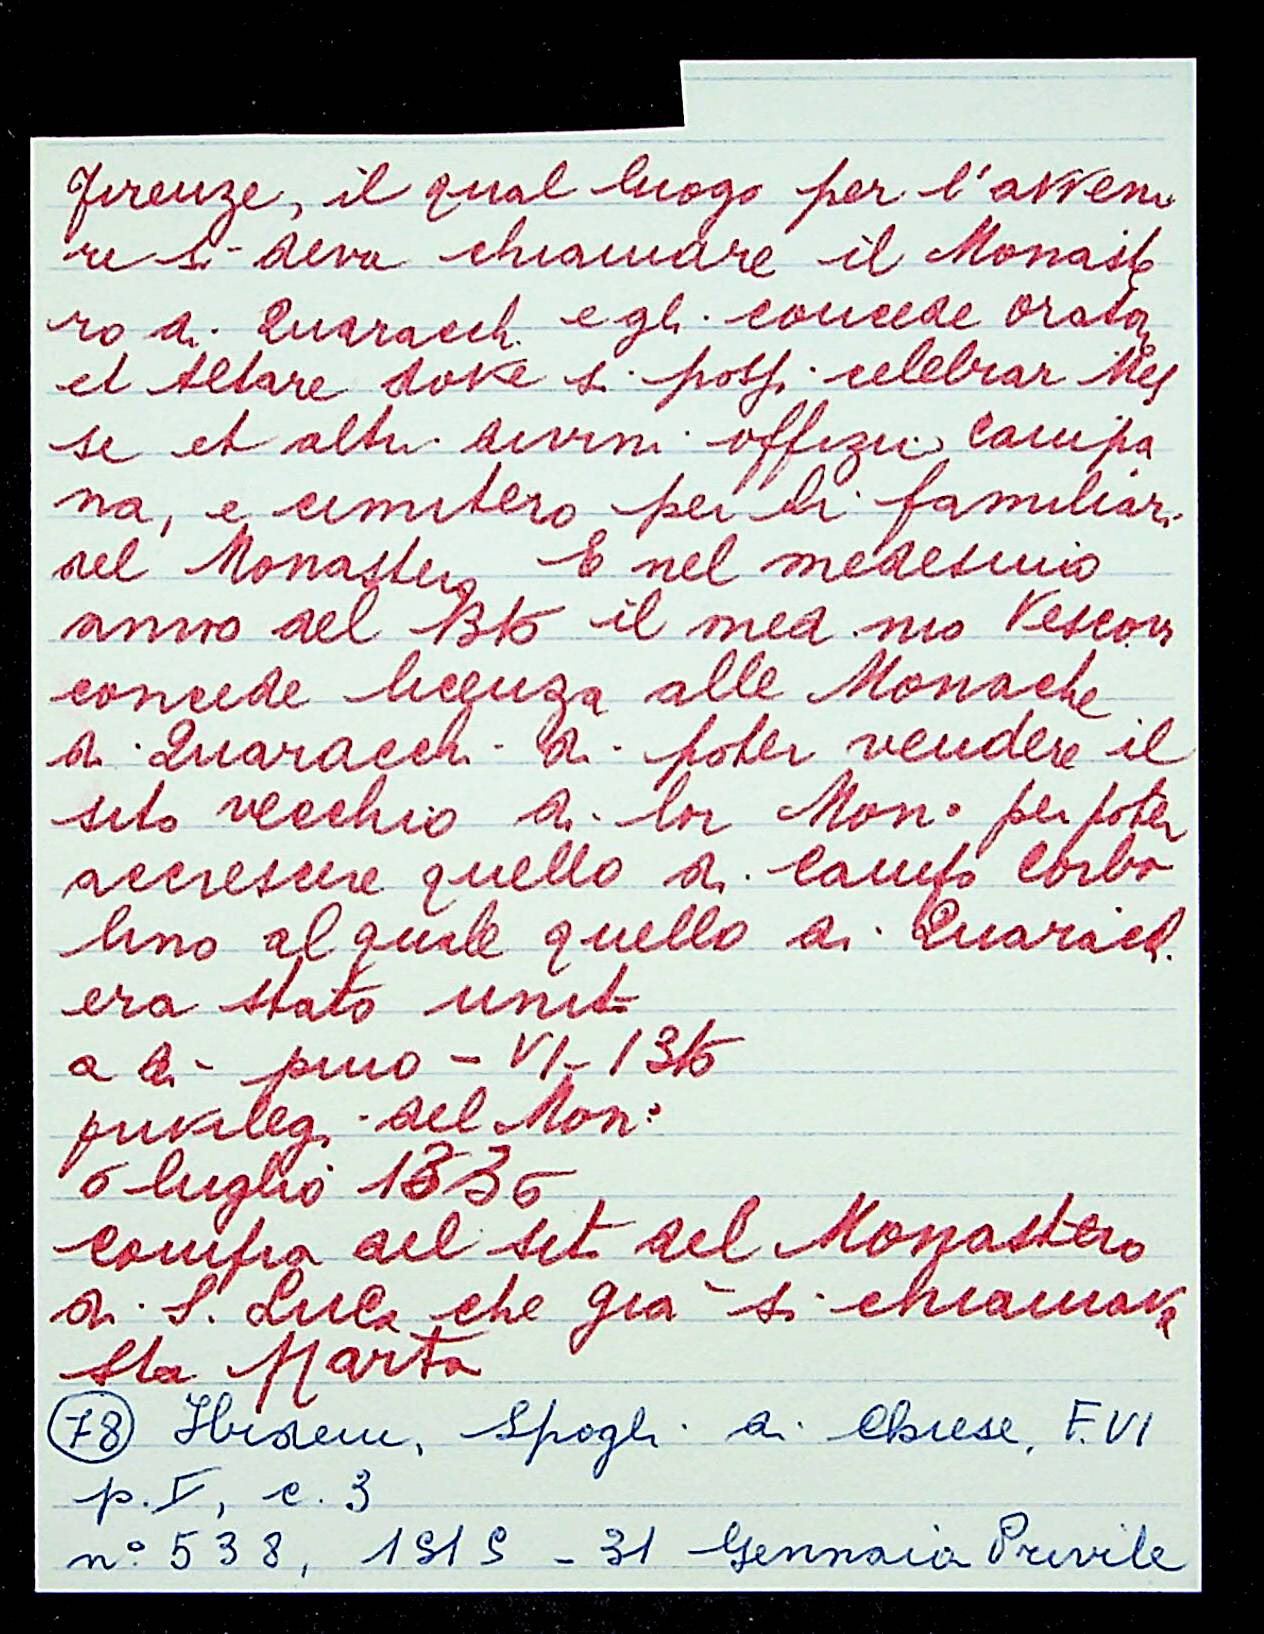 Firenze, il qual luogo per l'avveni
re si deva chiamare il Monaste
ro di Quaracchi e gli concede orato
et Altare dove si possi celebrar Mes
se et altri divini offizii Campa
na, e cimitero per li familiari
del Monastero E nel medesimo
anno del il med mo Vescovo
concede licenza alle Monache
di Quaracchi di poter vendere il
sito vecchio di lor Mon.o per poter
accrescere quello di Campo Corbo
lino al quale quello di Quaracch.
era stato unito
a di primo - VI -
privilegi del Mon.o
6 luglio 1336
Compra del sito del Monastero
di S. Luca che già si chiamava
Sta Marta
78 Ibidem, Spogli di Chiese, F. VI
p. V, c. 3
n.o 538, - 31 Gennaio Privile